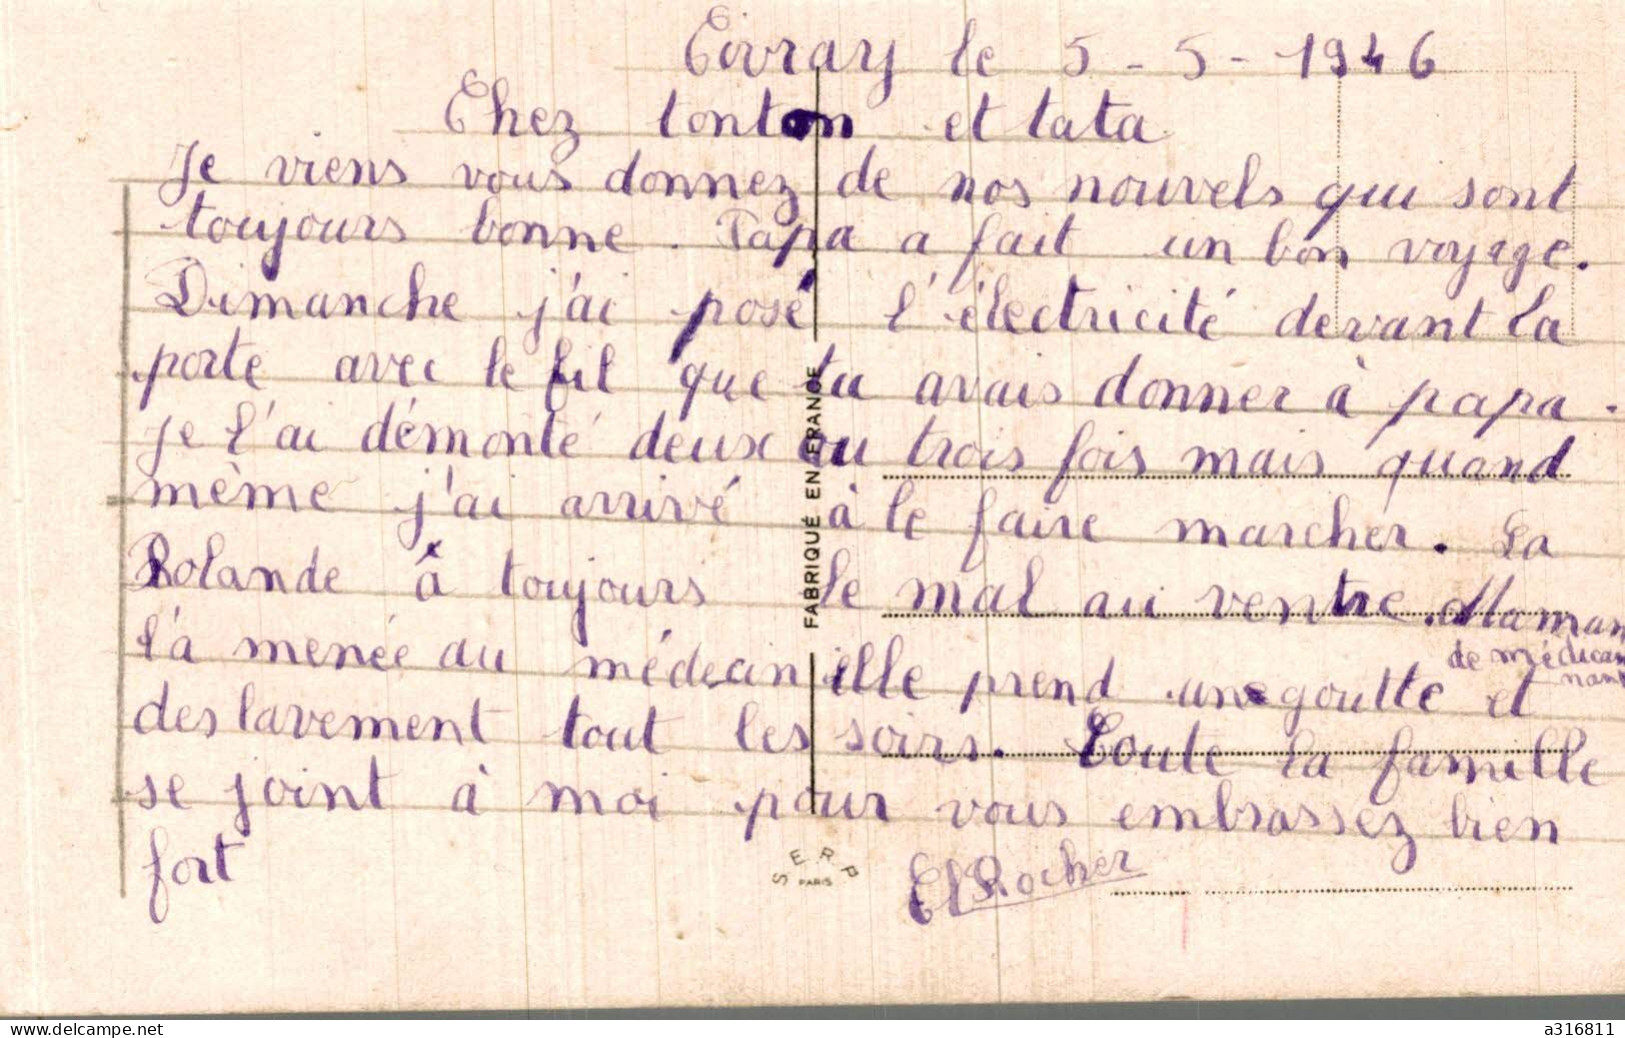 Civray le 5-5-1946
Chez tonton et tata
Je viens vous donnez de nos nouvels qui sont
toujours bonne. Papa a fait un bon voyage.
Dimanche j'ai posé l'électricité devant la
porte avec le fil que tu avais donner à papa.
je l'ai démonté deux ou trois fois mais quand
même j'ai arrivé à le faire marcher. La
Rolande à toujours le mal au ventre. Maman
l'a menée au médecin elle prend une goutte et
de médicam
des lavement tout les soirs. Toute la famille
se joint à moi pour vous embrassez bien
fort
Rocher
FABRIQUÉ EN FRANCE
SERP
PARIS
www.delcampe.net
a316811